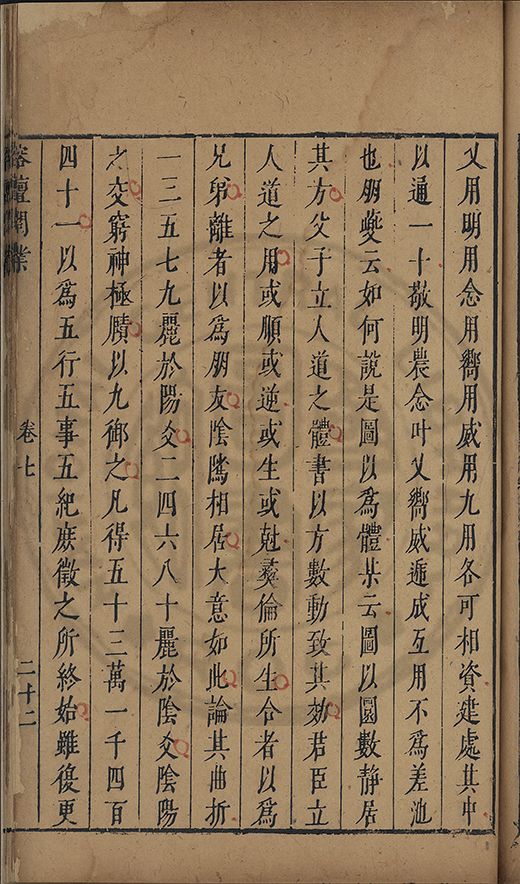 乂用明用念用嚮用威用九用各可相資建處其中
以通一十敬明農念叶乂嚮威遞成互用不爲差池
也朋夔云如何說是圖以爲體某云圖以圓數靜居
其方父子立人道之體書以方數動致其効君臣立
人道之用或順或逆或生或尅彞倫所生合者以爲
兄弟離者以爲朋友陰隲相居大意如此論其曲折
一三五七九麗於陽爻二四六八十麗於陰爻陰陽
之交窮神極賾以九御之凡得五十三萬一千四百
四十一以爲五行五事五紀庶徵之所終始雖復更
榕壇問業
卷七
二十二